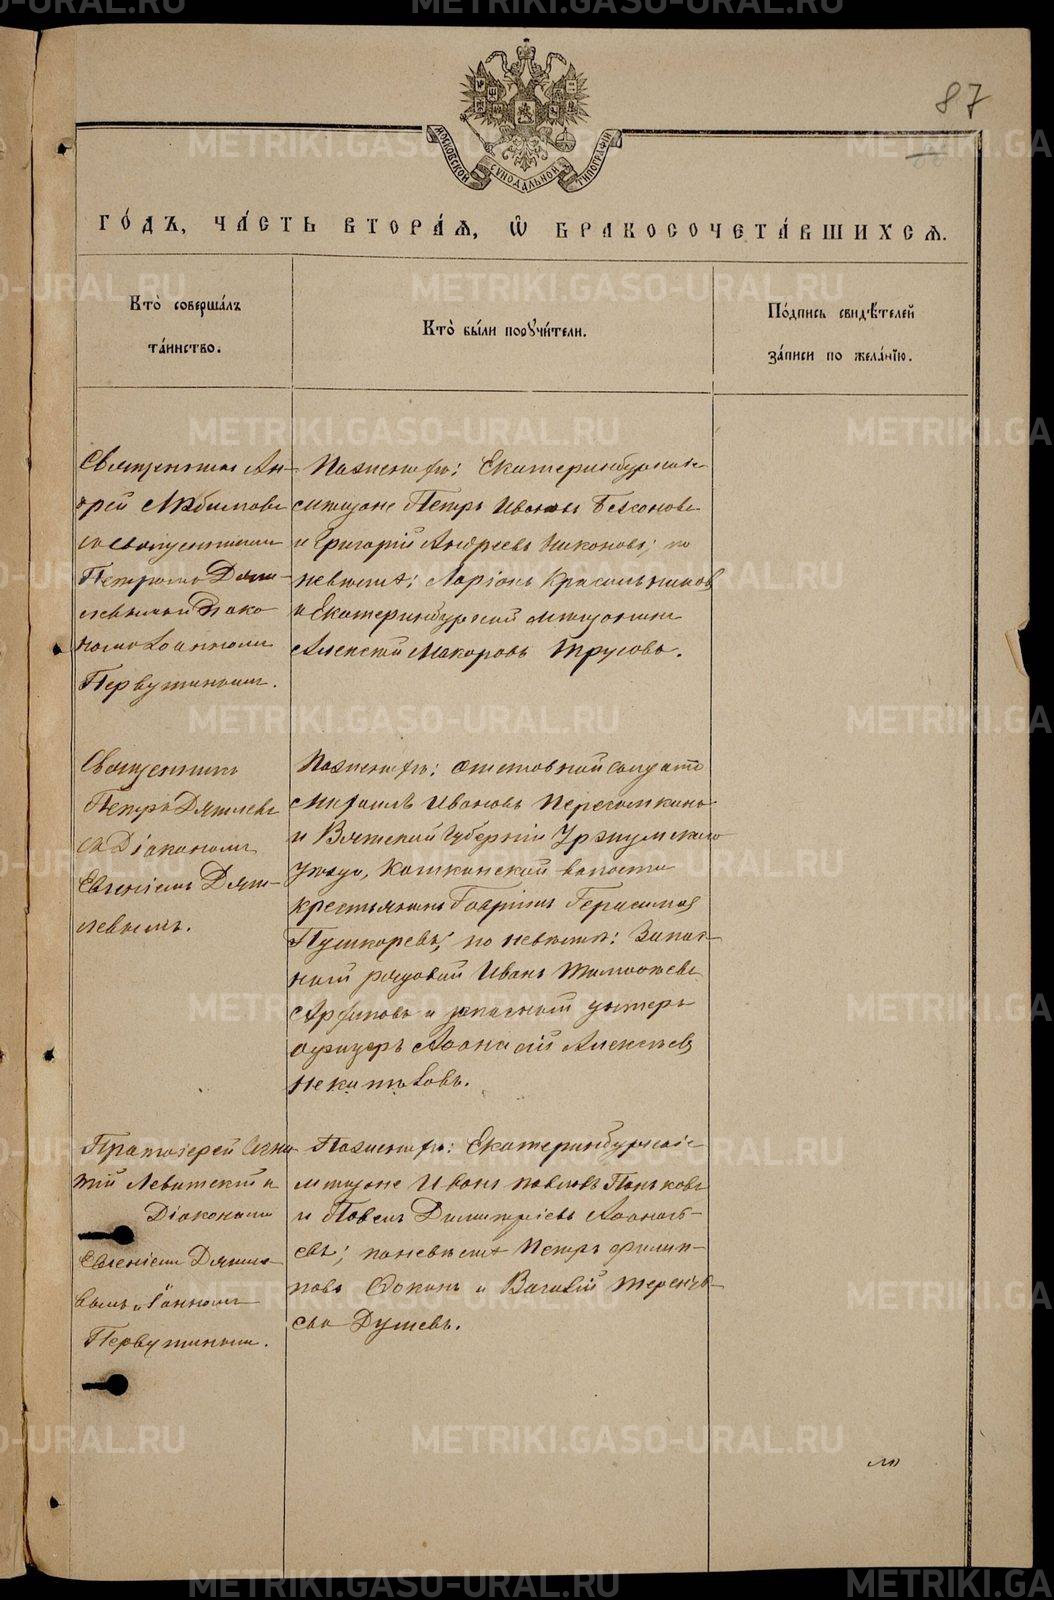 87
МОСКОВСКОЙ СѴНОДАЛЬНОЙ ТИПОГРАФІИ
ГО́ДЪ, ЧА́СТЬ ВТОРА́Ѧ, Ѽ БРАКОСОЧЕТА́ВШИХСѦ.
Кто̀ соверша́лъ
та́инство.
Кто̀ бы́ли порꙋчи́тели.
По́дпись свидѣ́телей
за́писи по жела́нїю.
Священникъ Ан-
дрей Любимовъ
со священникомъ
Петромъ Дяги-
левымъ и Діако
номъ Іоанномъ
Первушинымъ.
По женихѣ: Екатеринбургскіе
мѣщане Петръ Ивановъ Безсоновъ
и Григорій Андреевъ Никоновъ; по
невѣстѣ: Ларіонъ Красильников
и Екатеринбургской мѣщанинъ
Алексѣй Макаровъ Трусовъ.
Священникъ
Петръ Дягилевъ
съ Діакономъ
Евгеніемъ Дяги-
левымъ.
По женихѣ: отставной солдатъ
Михаилъ Ивановъ
и Вятской Губерніи Уржумскаго
уѣзда, волости
крестьянинъ Гавріилъ Герасимов
Пушкаревъ; по невѣстѣ: Запас-
ный рядовой Иванъ Тимофеевъ
и запасный унтеръ
офицеръ Афанасій Алексѣев
Протоіерей Игна
тій Левитскій и
Діаконами
Евгеніемъ Дягиле-
вымъ и Іоанномъ
Первушинымъ.
По женихѣ: Екатеринбургскіе
мѣщане Иванъ Павловъ Паньковъ
и Павелъ Димитріевъ Афанась-
евъ; по невѣстѣ Петръ Филип-
повъ и Василій Терентье-
въ Душевъ.
METRIKI.GASO-URAL.RU